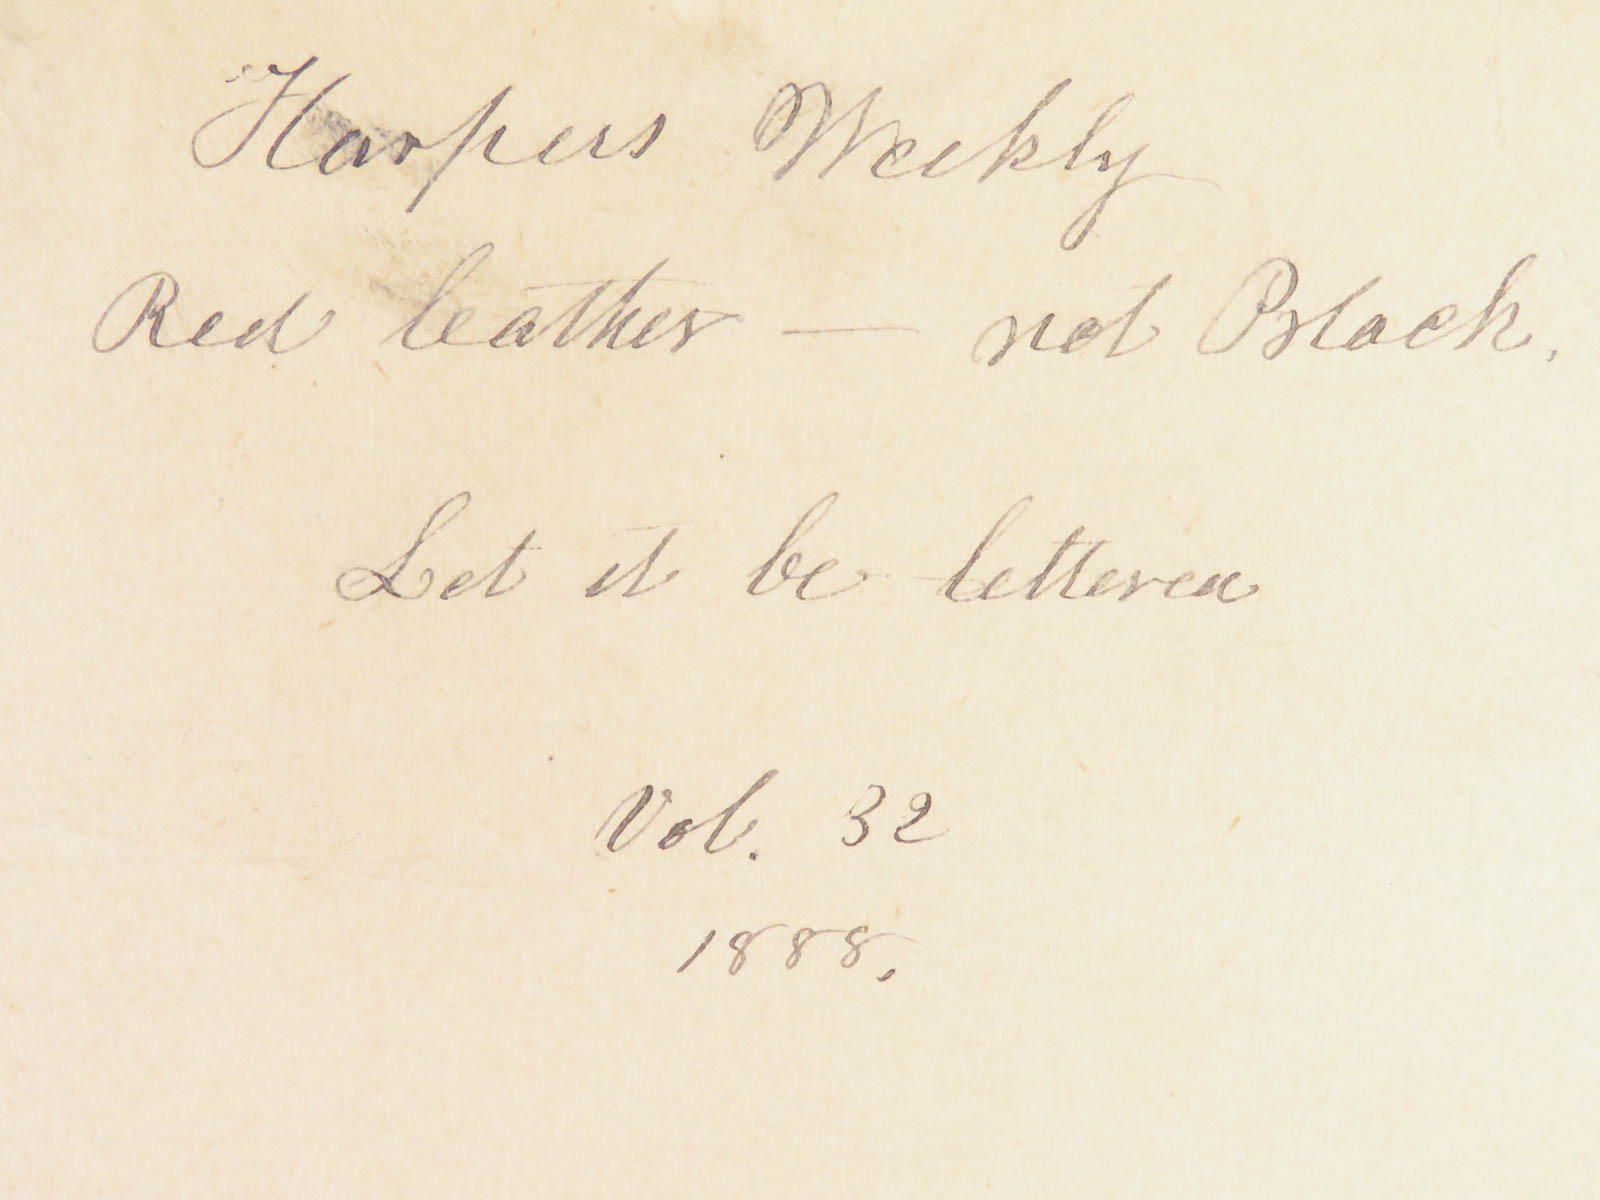 Harpers Weekly
Red leather — not Black.
Let it be lettered
Vol. 32
1888.